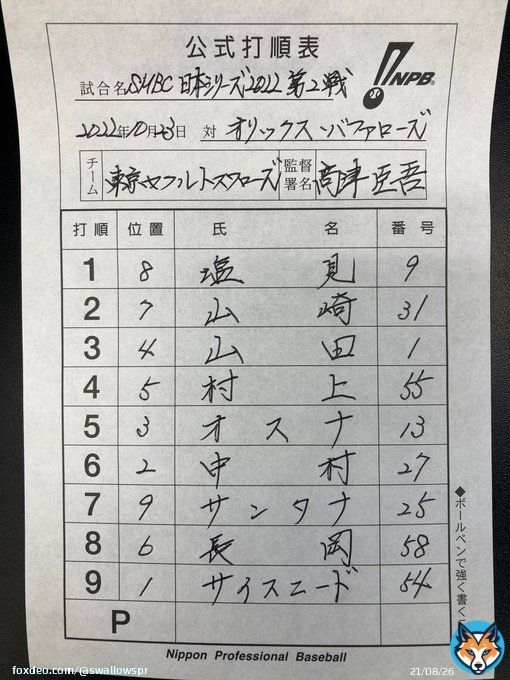 公式打順表
NPB
試合名 SMBC 日本シリーズ2022 第2戦
2022年10月23日 対 オリックス・バファローズ
チーム 東京ヤクルトスワローズ 監督署名 高津臣吾
打順 位置 氏名 番号
1 8 塩見 9
2 7 山崎 31
3 4 山田 1
4 5 村上 55
5 3 オスナ 13
6 2 中村 27
7 9 サンタナ 25
8 6 長岡 58
9 1 サイスニード 54
P
◆ボールペンで強く書く
Nippon Professional Baseball
foxdeo.com/@swallowspr
21/08/26